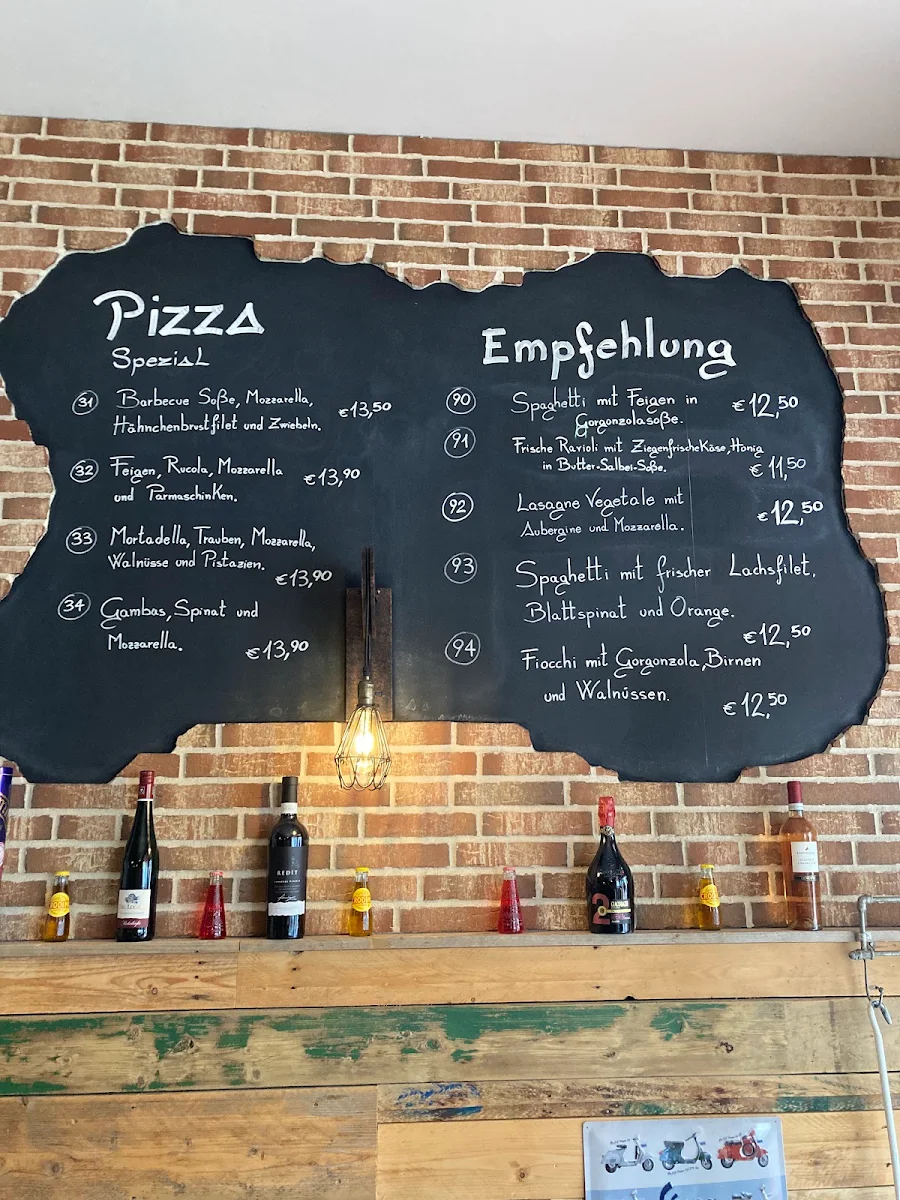 Pizza
Spezial
31 Barbecue Soße, Mozzarella,
Hähnchenbrustfilet und Zwiebeln. €13,50
32 Feigen, Rucola, Mozzarella
und Parmaschinken. €13,90
33 Mortadella, Trauben, Mozzarella,
Walnüsse und Pistazien.
€13,90
34 Gambas, Spinat und
Mozzarella. €13,90
Empfehlung
90 Spaghetti mit Feigen in €12,50
Gorgonzolasoße.
91 Frische Ravioli mit Ziegenfrischekäse, Honig
in Butter-Salbei-Soße. €11,50
92 Lasagne Vegetale mit €12,50
Aubergine und Mozzarella.
93 Spaghetti mit frischer Lachsfilet,
Blattspinat und Orange.
€12,50
94 Fiocchi mit Gorgonzola, Birnen
und Walnüssen. €12,50
REDIT